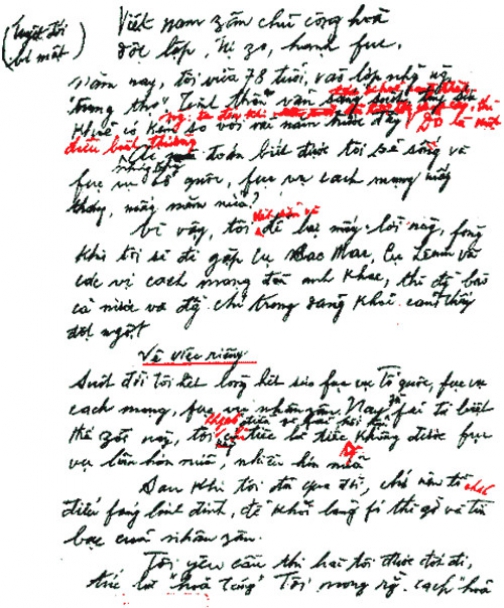 (Tuyệt đối
bí mật)
Việt nam zân chủ cộng hoà
độc lập, tự zo, hạnh fúc.
Năm nay, tôi vừa 78 tuổi, vào lớp những
"trung thọ". Tinh thần vẫn sáng suốt
khoẻ có kém so với vài năm trước đây. Đó là một
điều bình thường.
toán biết được tôi sẽ sống và
fục vụ tổ quốc, fục vụ cách mạng mấy
tháng, mấy năm nữa?
Vì vậy, tôi để lại mấy lời này, fòng
khi tôi sẽ đi gặp cụ Các Mác, cụ Lênin và
các vị cách mạng đàn anh khác, thì đồng bào
cả nước và đồng chí trong đảng khỏi cảm thấy
đột ngột.
Về việc riêng
Suốt đời tôi hết lòng hết sức fục vụ Tổ quốc, fục vụ
cách mạng, fục vụ nhân zân. Nay zù fải từ biệt
thế zới này, tôi không có điều gì fải hối hận, chỉ tiếc là tiếc không được fục
vụ lâu hơn nữa, nhiều hơn nữa
Sau khi tôi đã qua đời, chớ nên tổ chức
điếu fúng linh đình, để khỏi lãng fí thì giờ và tiền
bạc của nhân zân.
Tôi yêu cầu thi hài tôi được đốt đi,
tức là "hoả táng". Tôi mong rằng cách hoả